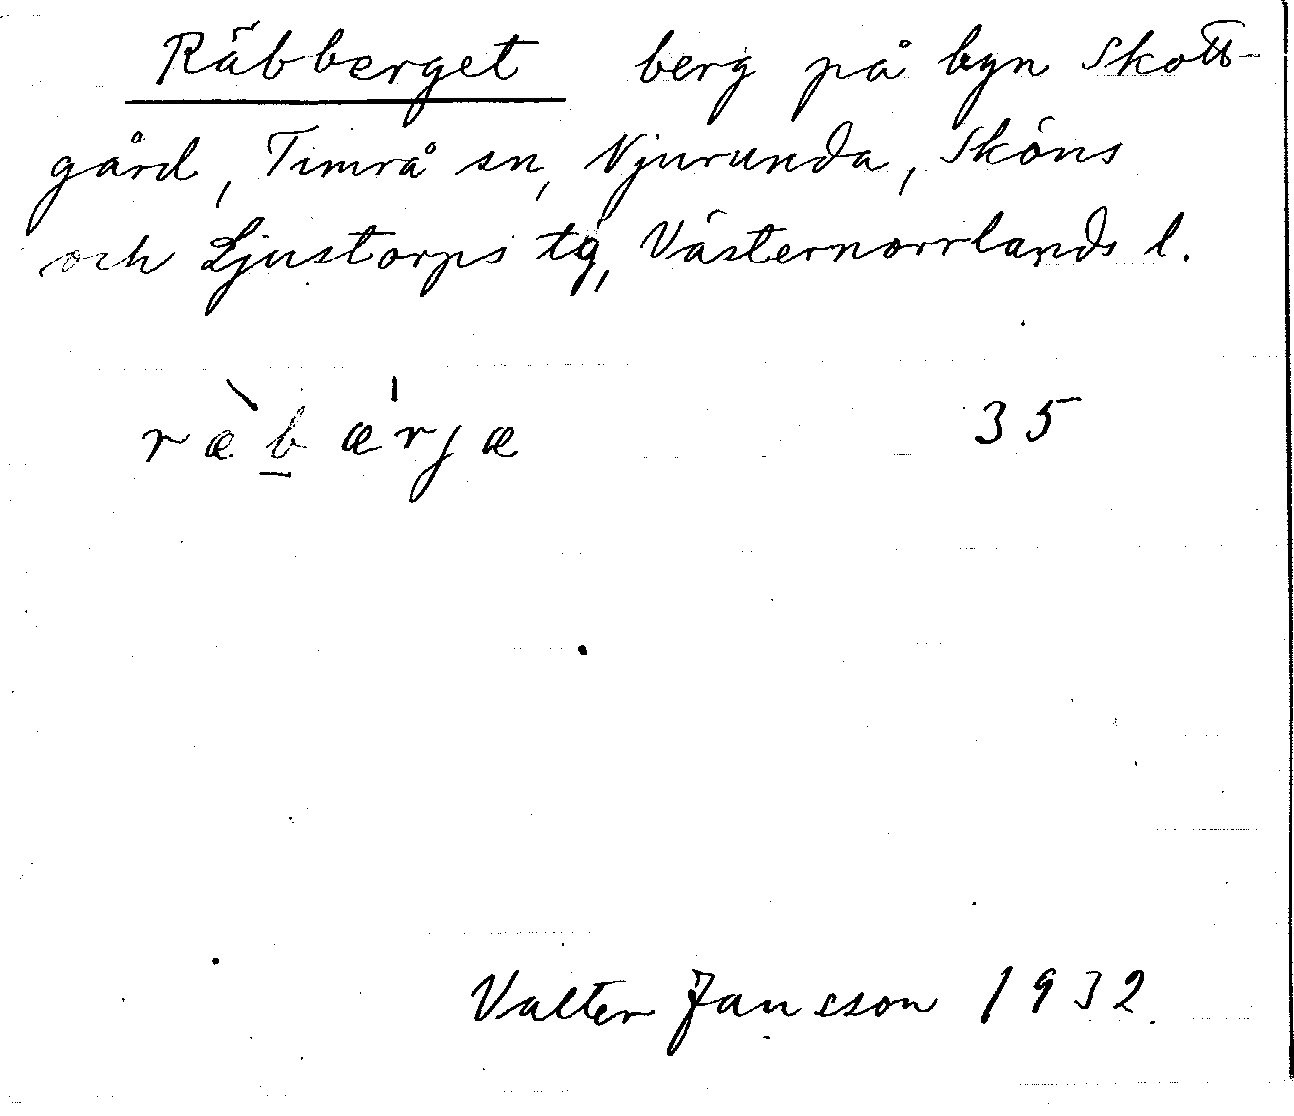 Räbberget berg på byn Skotts-
gård, Timrå sn, Njurunda, Sköns
och Ljustorps tg, Västernorrlands l.
ræ̀b̲æ̍rjæ 35
Valter Jansson 1932.